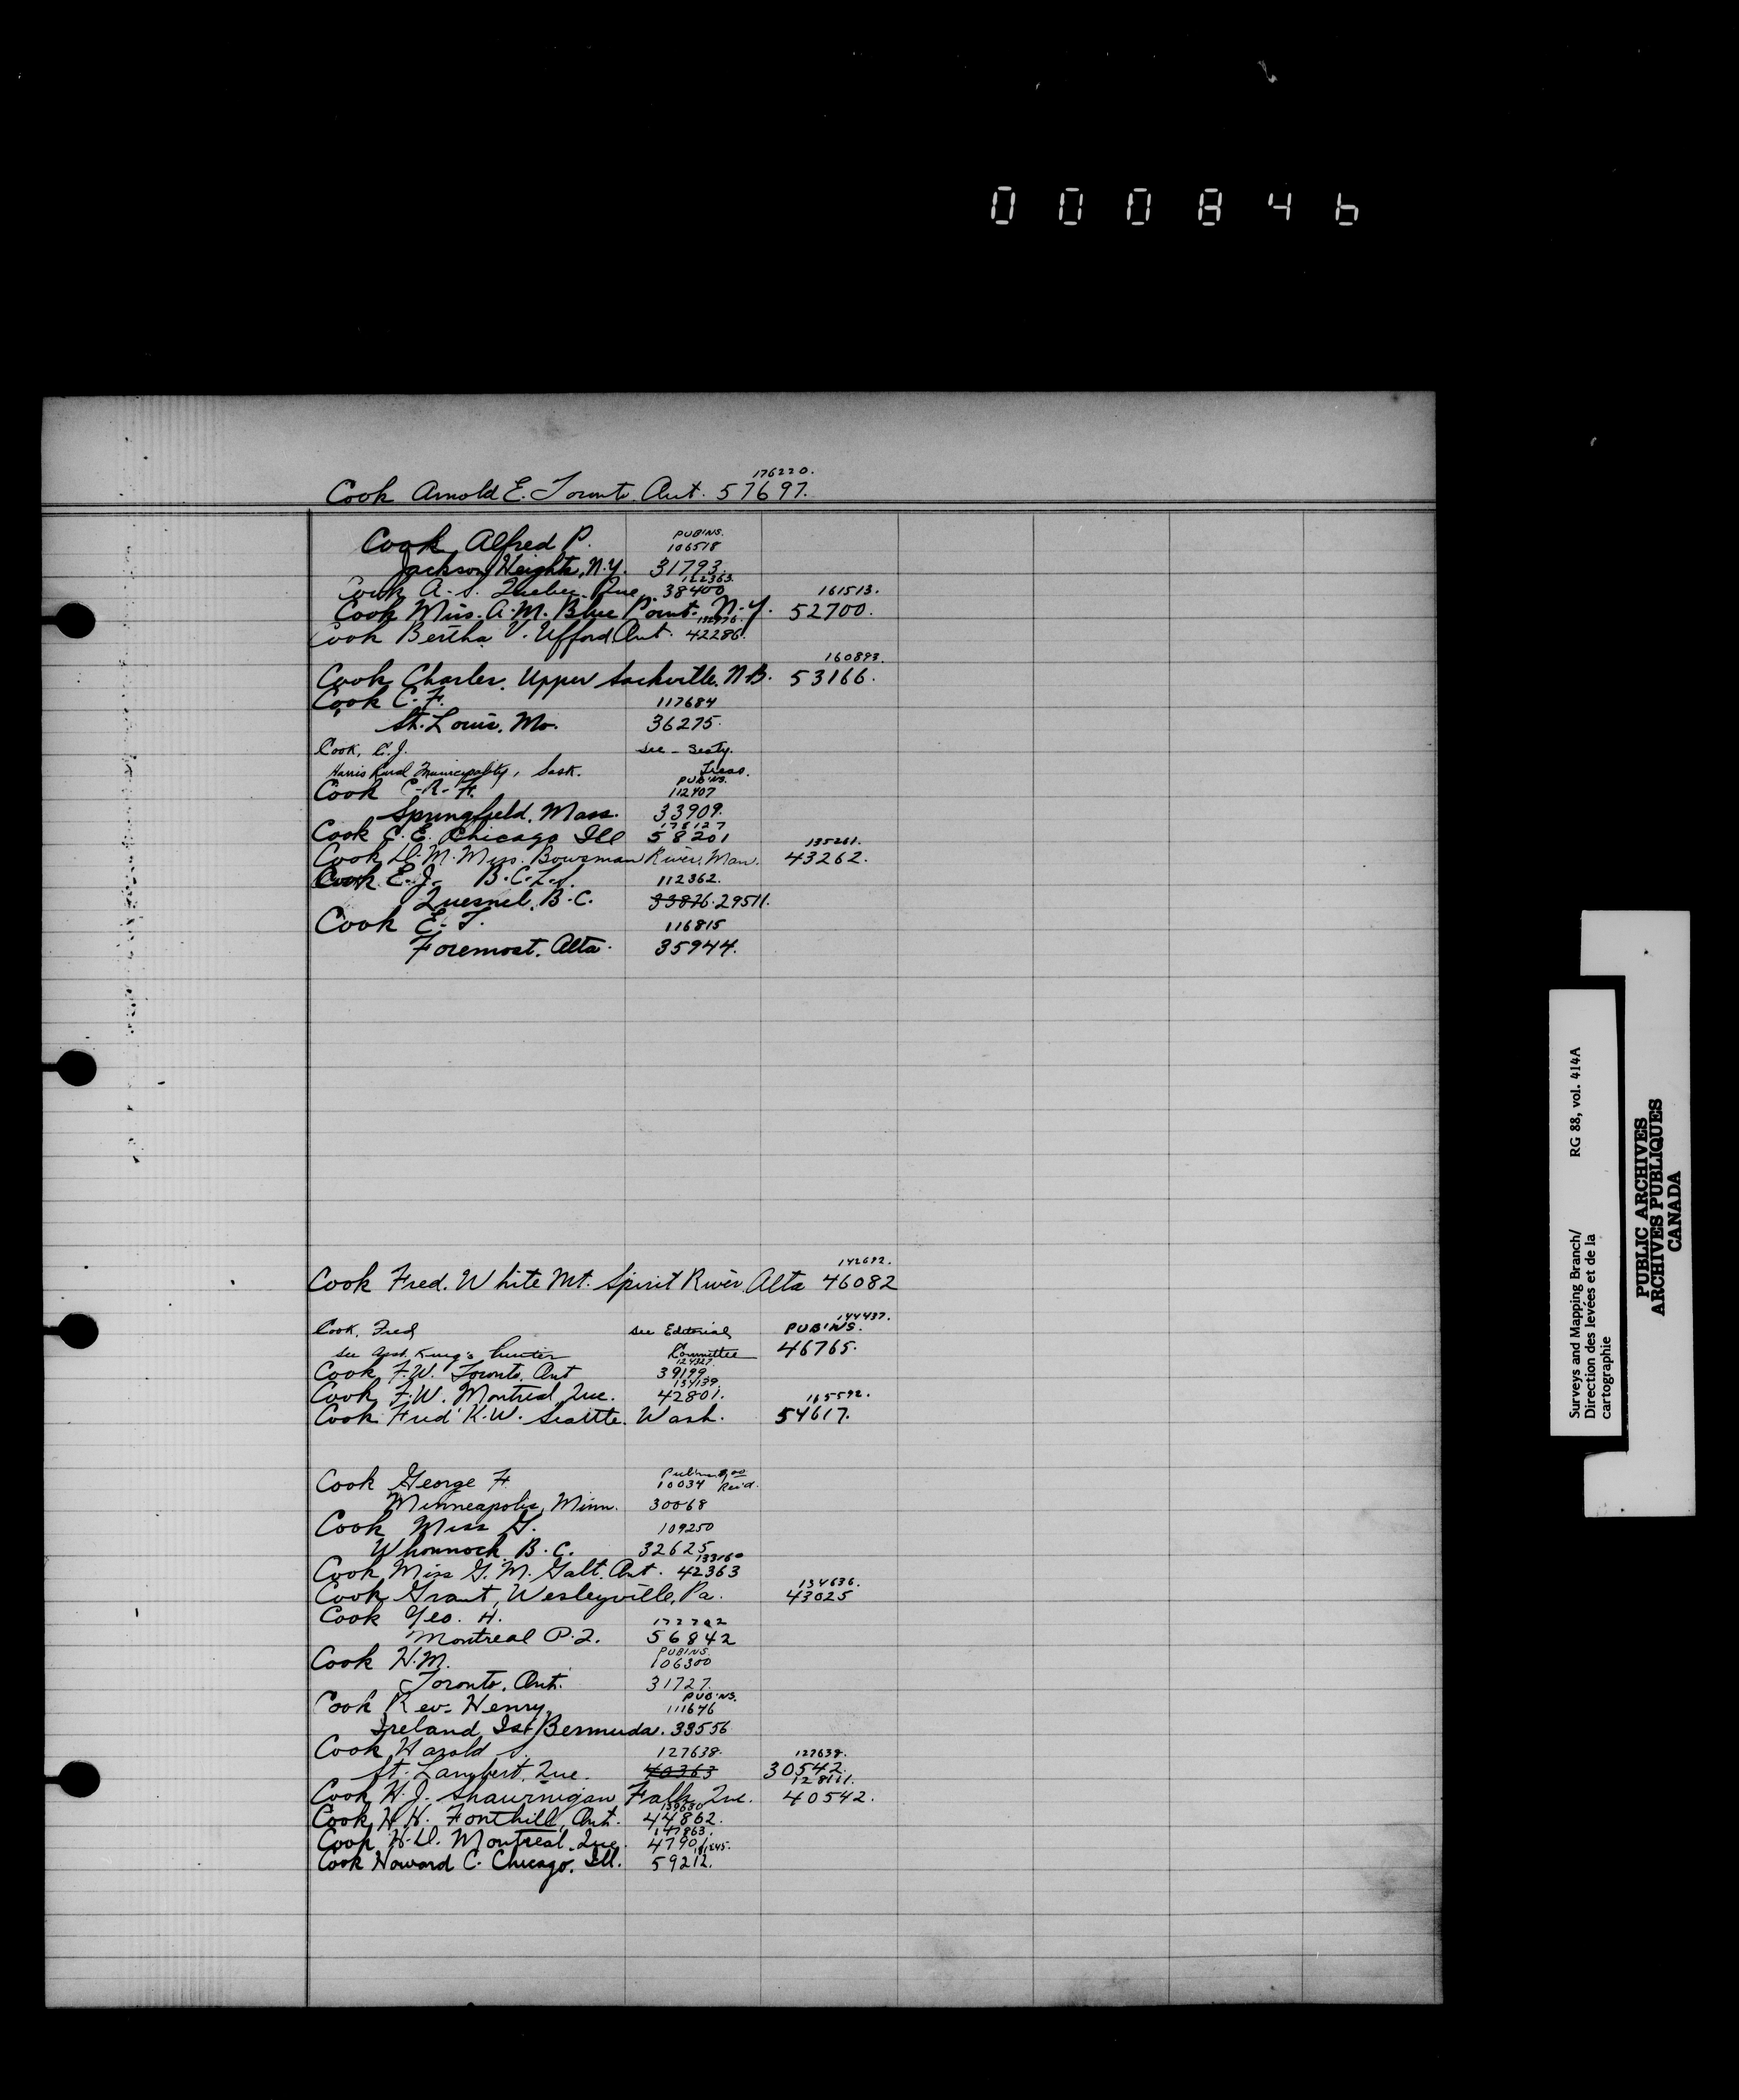 000846
176220.
Cook Arnold E. Toronto. Ont. 57697.
Cook Alfred P. PUB'NS. 106518
Jackson Heights, N.Y. 31793.
122363.
Cook A. S. Quebec. Que. 38400 161513.
Cook Miss. A. M. Blue Point. N.Y. 52700.
Cook Bertha. V. Ufford. Ont. 42286.
160893.
Cook Charles. Upper Sackville. N.B. 53166.
Cook C. F. 117684
St. Louis, Mo. 36275.
Cook, C. J. See - Secty.
Harris Rural Municipality, Sask. Treas.
PUB'NS.
Cook C. R. F. 112407
Springfield, Mass. 33909.
176127
Cook C. E. Chicago Ill 58201 135261.
Cook D. M. Miss. Bowsman River, Man. 43262.
Cook E. J. B.C.L.S. 112362.
Quesnel, B.C. 33876. 29511.
Cook E. T. 116815
Foremost, Alta. 35944.
142692.
Cook Fred. White Mt. Spirit River. Alta 46082
144437.
Cook, Fred see Editorial PUB'NS.
see Asst. King's Printer Committee 46765.
124327.
Cook F. W. Toronto, Ont 39199
134139.
Cook F. W. Montreal, Que. 42801. 165592.
Cook Fred K. W. Seattle. Wash. 54617.
Cook George F. 10034 Rec'd.
Minneapolis, Minn. 30068
Cook Miss G. 109250
Whonnock B.C. 32625
133160
Cook Miss G. M. Galt. Ont. 42363
134636.
Cook Grant, Wesleyville, Pa. 43025
Cook Geo. H. 172702
Montreal P.Q. 56842
PUB'NS.
Cook H. M. 106300
Toronto, Ont. 31727.
PUB'NS.
Cook Rev. Henry 111676
Ireland Isd Bermuda. 33556
Cook Harold S. 127638. 127638.
St. Lambert, Que. 40363 30542.
128111.
Cook H. J. Shawinigan Falls, Que. 40542.
139630
Cook H. H. Fonthill, Ont. 44862.
147863.
Cook H. D. Montreal, Que. 47901
Cook Howard C. Chicago, Ill. 59212.
Surveys and Mapping Branch/ RG 88, vol. 414A
Direction des levées et de la
cartographie
PUBLIC ARCHIVES
ARCHIVES PUBLIQUES
CANADA